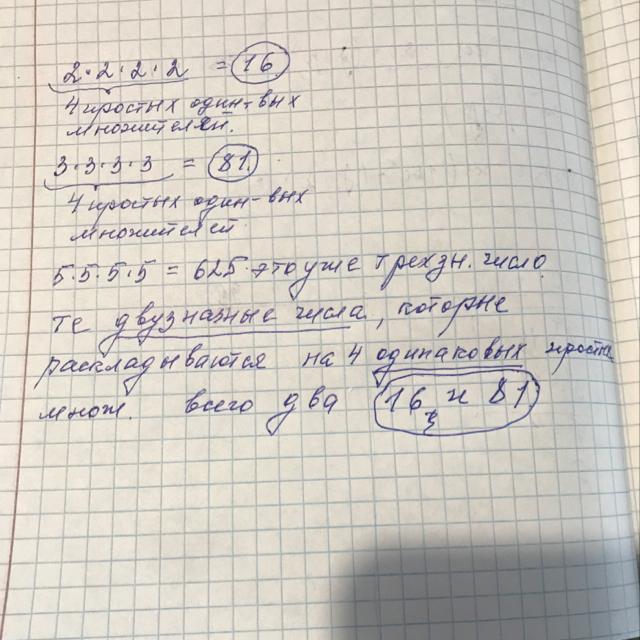 2·2·2·2 = 16
4 простых один-вых
множителей.
3·3·3·3 = 81.
4 простых один-вых
множителей
5·5·5·5 = 625 это уже трехзн. число
те двузначные числа, которые
раскладываются на 4 одинаковых просты
множ. всего два 16 и 81